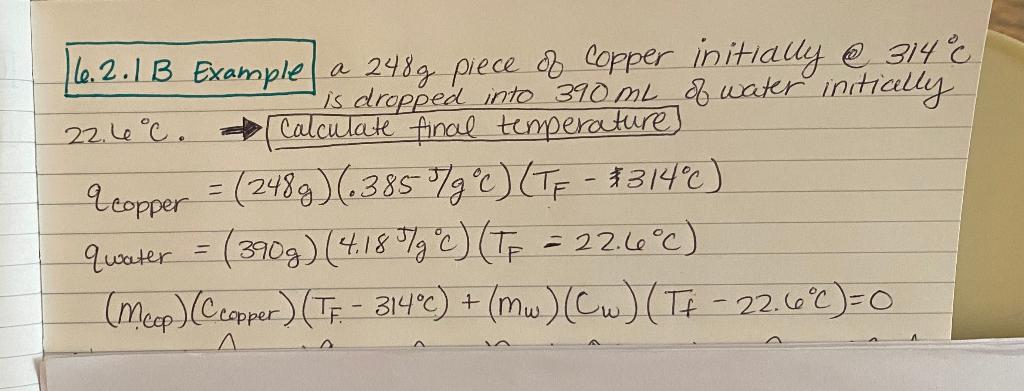 6.2.1B Example a 248g piece of Copper initially @ 314°C
is dropped into 390mL of water initially
22.6°C. → Calculate final temperature
q copper = (248g)(.385 J/g°C)(TF - 314°C)
q water = (390g)(4.18 J/g°C)(TF = 22.6°C)
(mcop)(Ccopper)(TF - 314°C) + (mw)(Cw)(Tf - 22.6°C)=0